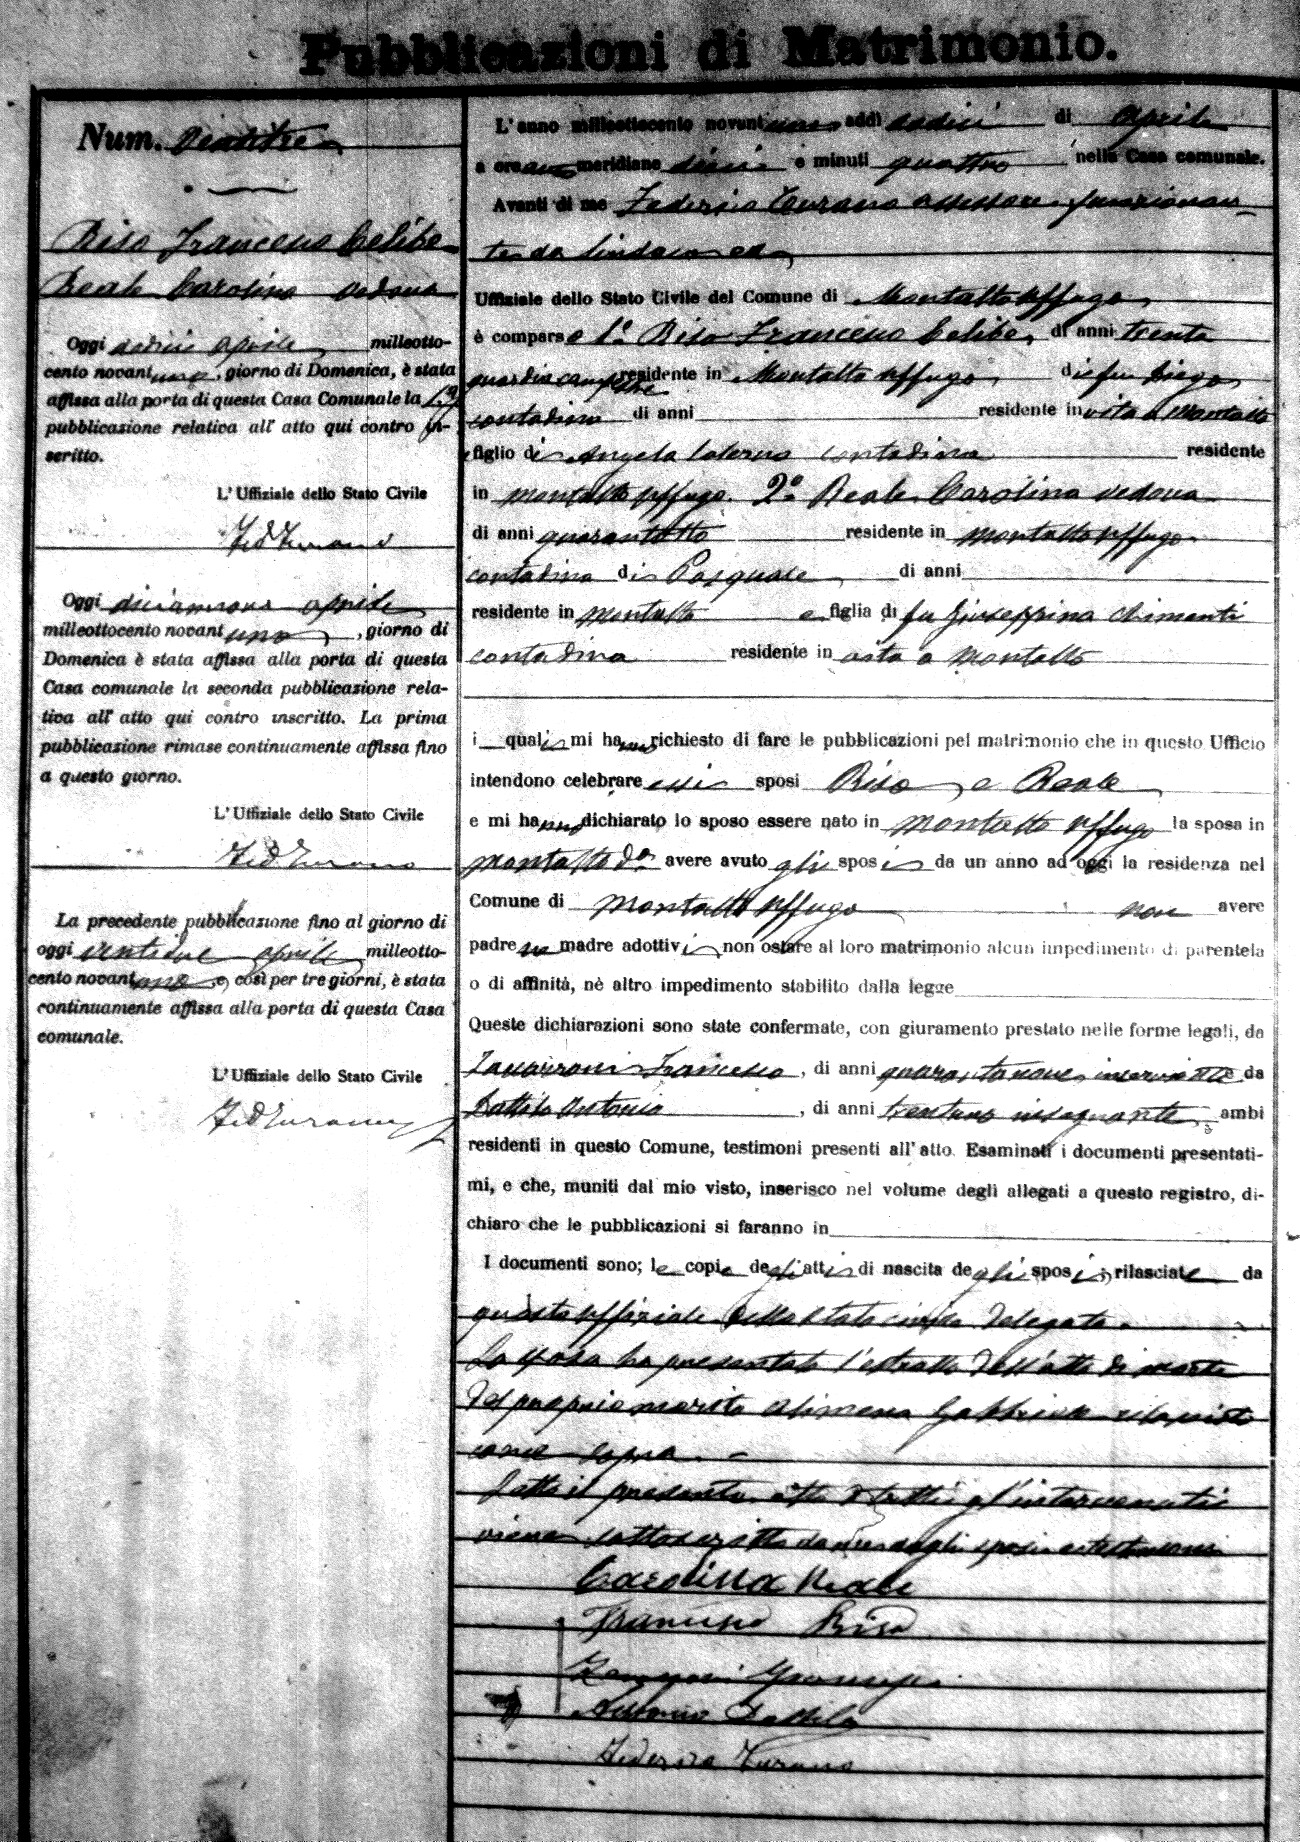 Pubblicazioni di Matrimonio.
Num. Ventitre
Riso Francesco Celibe
Reale Carolina vedova
Oggi dodici aprile milleotto-
cento novantuno, giorno di Domenica, è stata
affissa alla porta di questa Casa Comunale la 1ª
pubblicazione relativa all' atto qui contro in-
scritto.
L' Uffiziale dello Stato Civile
Fed Turano
Oggi diciannove aprile
milleottocento novantuno, giorno di
Domenica è stata affissa alla porta di questa
Casa comunale la seconda pubblicazione rela-
tiva all' atto qui contro inscritto. La prima
pubblicazione rimase continuamente affissa fino
a questo giorno.
L' Uffiziale dello Stato Civile
Fed Turano
La precedente pubblicazione fino al giorno di
oggi ventidue aprile milleotto-
cento novantuno e, così per tre giorni, è stata
continuamente affissa alla porta di questa Casa
comunale.
L' Uffiziale dello Stato Civile
Fed Turano
L' anno milleottocento novantuno addì dodici di Aprile
a ore anti meridiane dieci e minuti quattro nella Casa comunale.
Avanti di me Federico Turano assessore funzionan-
te da Sindaco ed
Uffiziale dello Stato Civile del Comune di Montalto Uffugo
è comparso 1º Riso Francesco Celibe, di anni trenta
guardia campestre residente in Montalto Uffugo di fu Diego
contadino di anni residente in vita a Montalto
figlio di Angela contadina residente
in Montalto Uffugo. 2º Reale Carolina vedova
di anni quarantotto residente in Montalto Uffugo
contadina di Pasquale di anni
residente in Montalto e figlia di fu Giuseppina Chimenti
contadina residente in vita a Montalto
i quali mi hanno richiesto di fare le pubblicazioni pel matrimonio che in questo Ufficio
intendono celebrare essi sposi Riso e Reale
e mi hanno dichiarato lo sposo essere nato in Montalto Uffugo la sposa in
Montalto dº avere avuto gli sposi da un anno ad oggi la residenza nel
Comune di Montalto Uffugo non avere
padre ne madre adottivi non ostare al loro matrimonio alcun impedimento di parentela
o di affinità, nè altro impedimento stabilito dalla legge
Queste dichiarazioni sono state confermate, con giuramento prestato nelle forme legali, da
Francesco, di anni quarantanove inserviente da
Antonio, di anni trentuno insegnante ambi
residenti in questo Comune, testimoni presenti all' atto. Esaminati i documenti presentati-
mi, e che, muniti dal mio visto, inserisco nel volume degli allegati a questo registro, di-
chiaro che le pubblicazioni si faranno in
I documenti sono; le copie degli atti di nascita degli sposi, rilasciate da
questo uffiziale dello stato civile delegato.
La sposa ha presentato l'estratto dell'atto di morte
del proprio marito Alimena Gabriele rilasciato
come sopra.
Letto il presente atto a tutti gl'intervenuti
viene sottoscritto da me dagli sposi e testimoni
Carolina Reale
Francesco Riso
Antonio
Federico Turano